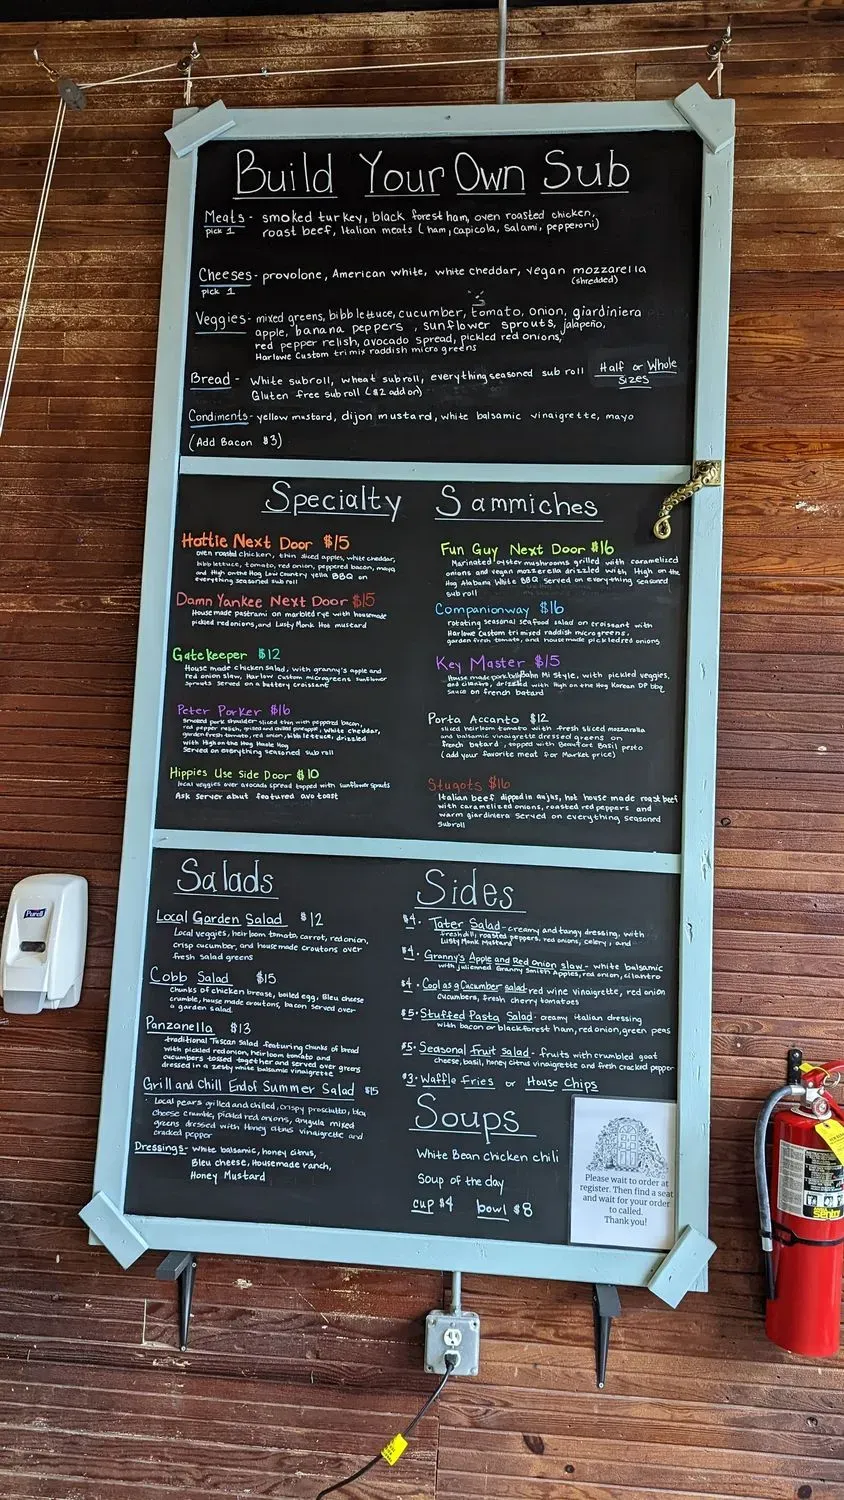 Build Your Own Sub
Meats - smoked turkey, black forest ham, oven roasted chicken,
pick 1 roast beef, Italian meats (ham, capicola, salami, pepperoni)
Cheeses - provolone, American white, white cheddar, vegan mozzarella
pick 1 (shredded)
Veggies - mixed greens, bibb lettuce, cucumber, tomato, onion, giardiniera
apple, banana peppers, sunflower sprouts, jalapeño,
red pepper relish, avocado spread, pickled red onions,
Harlowe Custom tri mix raddish micro greens
Bread - White subroll, wheat subroll, everything seasoned sub roll
Gluten free sub roll ($2 add on)
Half or Whole
Sizes
Condiments - yellow mustard, dijon mustard, white balsamic vinaigrette, mayo
(Add Bacon $3)
Specialty Sammiches
Hottie Next Door $15
oven roasted chicken, thin sliced apples, white cheddar,
bibb lettuce, tomato, red onion, peppered bacon, mayo
and High on the Hog Low Country yella BBQ on
everything seasoned sub roll
Damn Yankee Next Door $15
House made pastrami on marbled rye with housemade
picked red onions, and Lusty Monk Hot mustard
Gatekeeper $12
House made chicken salad, with granny's apple and
red onion slaw, Harlow Custom microgreens sunflower
sprouts served on a buttery croissant
Peter Porker $16
Smoked pork shoulder sliced thin with peppered bacon,
red pepper relish, grilled and chilled pineapple, white cheddar,
garden fresh tomato, red onion, bibb lettuce, drizzled
with High on the Hog Hoole Hog
Served on everything seasoned sub roll
Hippies Use Side Door $10
local veggies over avocado spread topped with sunflower sprouts
Ask server about featured avo toast
Fun Guy Next Door $16
Marinated oyster mushrooms grilled with caramelized
onions and vegan mozzerella drizzled with High on the
Hog Alabama White BBQ served on everything seasoned
sub roll
Companionway $16
rotating seasonal seafood salad on croissant with
Harlowe Custom tri mixed raddish micro greens,
garden fresh tomato, and house made pickled red onions
Key Master $15
House made pork belly Bahn Mi Style, with pickled veggies,
and cilantro, drizzled with High on the Hog Korean DP bbq
sauce on french batard
Porta Accanto $12
sliced heirloom tomato with fresh sliced mozzarella
and balsamic vinaigrette dressed greens on
french batard, topped with Beaufort Basil pesto
(add your favorite meat for Market price)
Stugots $16
Italian beef dipped in aujus, hot house made roast beef
with caramelized onions, roasted red peppers and
warm giardiniera served on everything seasoned
subroll
Salads
Local Garden Salad $12
Local veggies, heirloom tomato, carrot, red onion,
crisp cucumber, and housemade croutons over
fresh salad greens
Cobb Salad $15
Chunks of chicken breast, boiled egg, Bleu cheese
crumble, house made croutons, bacon served over
a garden salad
Panzanella $13
traditional Tuscan Salad featuring chunks of bread
with pickled red onion, heirloom tomato and
cucumbers tossed together and served over greens
dressed in a zesty white balsamic vinaigrette
Grill and Chill End of Summer Salad $15
Local pears grilled and chilled, crispy prosciutto, bleu
cheese crumble, pickled red onions, arugula mixed
greens dressed with Honey citrus vinaigrette and
cracked pepper
Dressings - white balsamic, honey citrus,
Bleu cheese, Housemade ranch,
Honey Mustard
Sides
$4. Tater Salad - creamy and tangy dressing, with
fresh dill, roasted peppers, red onions, celery, and
Lusty Monk Mustard
$4. Granny's Apple and Red onion slaw - white balsamic
with julienned Granny Smith Apples, red onion, cilantro
$4. Cool as a Cucumber salad - red wine vinaigrette, red onion
cucumbers, fresh cherry tomatoes
$5. Stuffed Pasta Salad - creamy italian dressing
with bacon or black forest ham, red onion, green peas
$5. Seasonal Fruit Salad - fruits with crumbled goat
cheese, basil, honey citrus vinaigrette and fresh cracked pepper
$3. Waffle Fries or House Chips
Soups
White Bean chicken chili
Soup of the day
cup $4 bowl $8
Please wait to order at
register. Then find a seat
and wait for your order
to called.
Thank you!
Purell
sentry